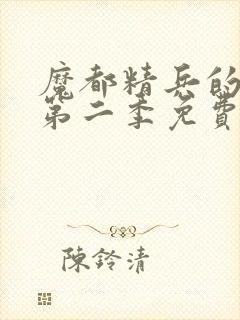 魔都精兵的
第二季免費
陳鈴清